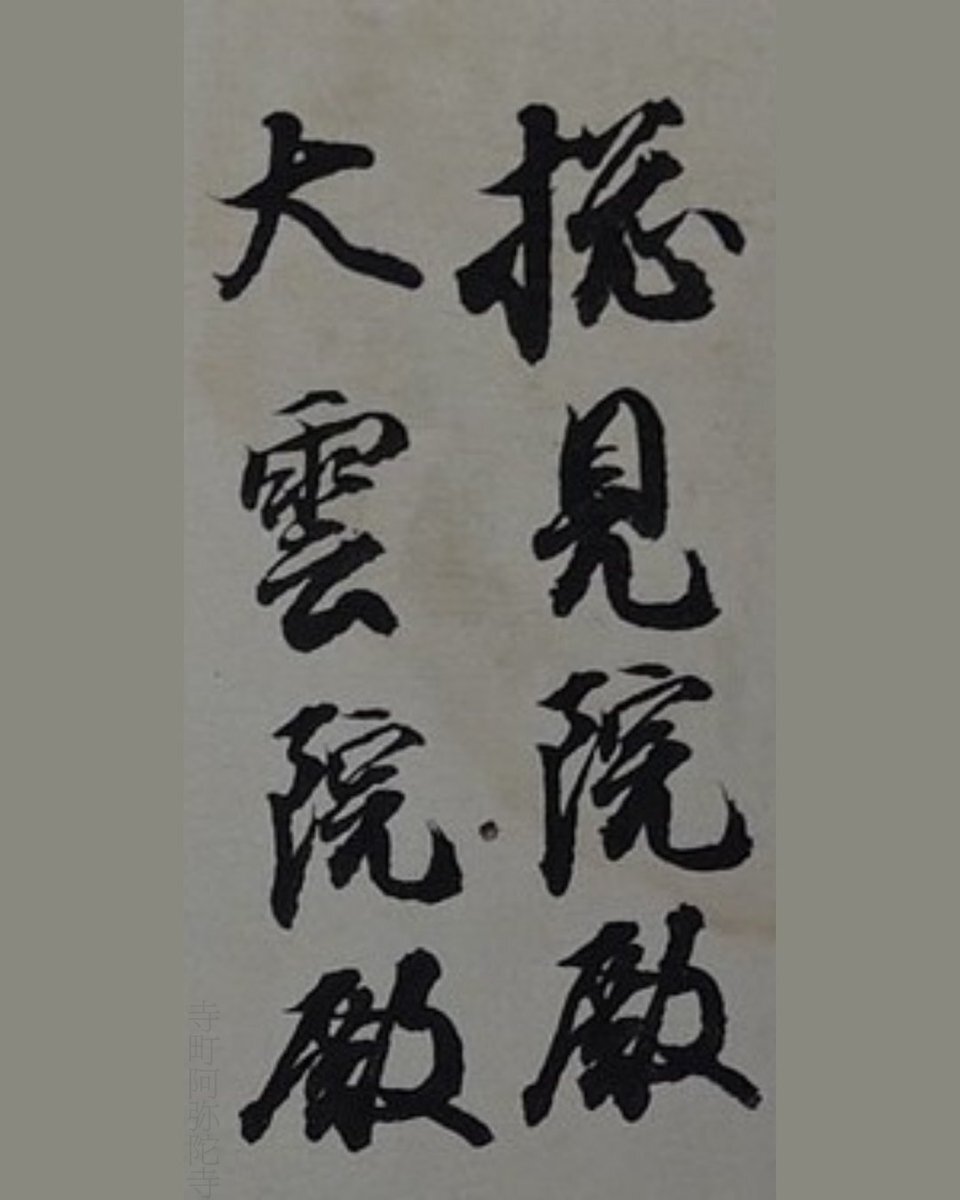 摠見院殿
大雲院殿
寺町阿弥陀寺